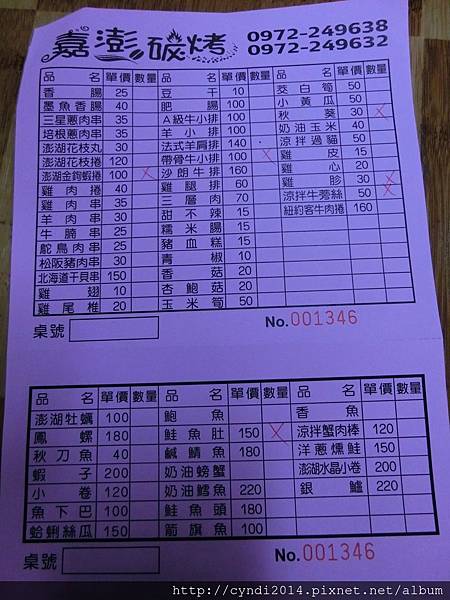 嘉澎碳烤 0972-249638
0972-249632
品名 單價 數量 品名 單價 數量 品名 單價 數量
香腸 25 豆干 10 茭白筍 50
墨魚香腸 40 肥腸 100 小黃瓜 50
三星蔥肉串 35 A級牛小排 100 秋葵 30
培根蔥肉串 35 羊小排 100 奶油玉米 40
澎湖花枝丸 30 法式羊肩排 140 涼拌過貓 50
澎湖花枝捲 120 帶骨牛小排 100 雞皮 15
澎湖金鉤蝦捲 100 沙朗牛排 160 雞心 20
雞肉捲 40 雞腿排 60 雞胗 30
雞肉串 35 三層肉 70 涼拌牛蒡絲 50
羊肉串 30 甜不辣 15 紐約客牛肉捲 160
牛腩串 25 糯米腸 15
鴕鳥肉串 25 豬血糕 15
松阪豬肉串 30 青椒 10
北海道干貝串 150 香菇 20
雞翅 10 杏鮑菇 20
雞尾椎 20 玉米筍 50
桌號 No.001346
品名 單價 數量 品名 單價 數量 品名 單價 數量
澎湖牡蠣 100 鮑魚 香魚
鳳螺 180 鮭魚肚 150 涼拌蟹肉棒 120
秋刀魚 40 鹹鯖魚 180 洋蔥燻鮭 150
蝦子 200 奶油螃蟹 澎湖水晶小卷 200
小卷 120 奶油鱈魚 220 銀鱈 220
魚下巴 100 鮭魚頭 180
蛤蜊絲瓜 150 箭旗魚 100
桌號 No.001346
http://cyndi2014.pixnet.net/album